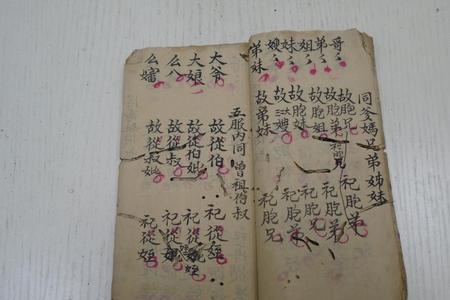 同爹媽兄弟姊妹
哥〻 故胞兄 祀胞弟
弟〻 故胞弟 祀胞兄
姐〻 故胞姐 祀胞弟
妹〻 故胞妹
嫂〻 故大嫂 祀胞弟
弟妹 故弟妹 祀胞兄
五服內同曾祖伯叔
大爺 故從伯 祀從姪
大娘 故從伯 祀從姪
么八 故從叔 祀從
么嬸 故從叔 祀從姪